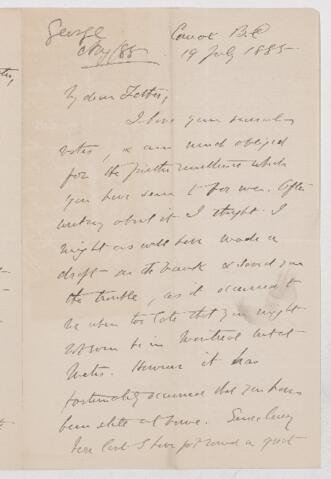 George
Aug/85
19 July 1885
My dear Father,
I have your
notes, & am much obliged
for the further remittance which
you have sent for me. After
writing about it I thought I
might as well have made a
draft on the bank & saved you
the trouble, as it occurred to
me when too late that you might
not be in Montreal
However it has
fortunately occurred that you have
been still at home. Since
here last I have got round a great